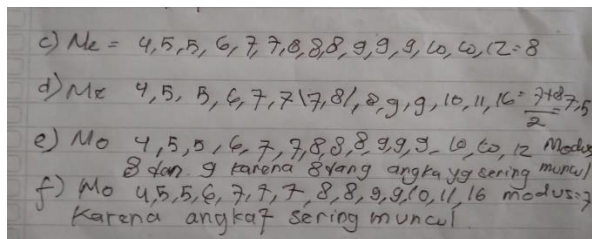 c) Me = 4,5,5,6,7,7,8,8,8,9,9,9,10,10,12=8
d) Me 4,5, 5, 6,7,7\7,8/,8,9,9,10,11,16=7+8/2=7,5
e) Mo 4,5,5,6,7,7,8,8,8,9,9,9,10,10,12 Modus
8 dan 9 karena 8 dang angka yg sering muncul
f) Mo 4,5,5,6,7,7,7,8,8,9,9,10,11,16 modus=7
Karena angka7 sering muncul